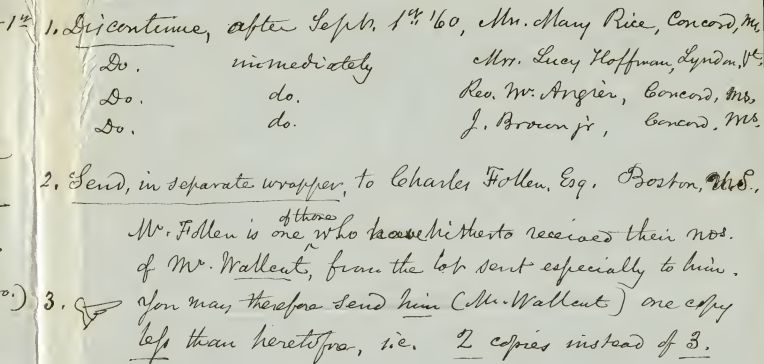 -1st 1. Discontinue, after Sept. 1st '60, Mrs. Mary Rice, Concord, Ms.
Do. immediately Mrs. Lucy Hoffman, Lyndon, Vt.
Do. do. Rev. Mr. Angier, Concord, Ms.
Do. do. J. Brown jr, Concord, Ms.
2. Send, in separate wrapper, to Charles Follen, Esq. Boston, MS.,
Mr. Follen is one of those who have hitherto received their nos.
of Mr. Wallcut, from the lot sent especially to him.
o.) 3. ☞ You may therefore send him (Mr. Wallcut) one copy
less than heretofore, i.e. 2 copies instead of 3.